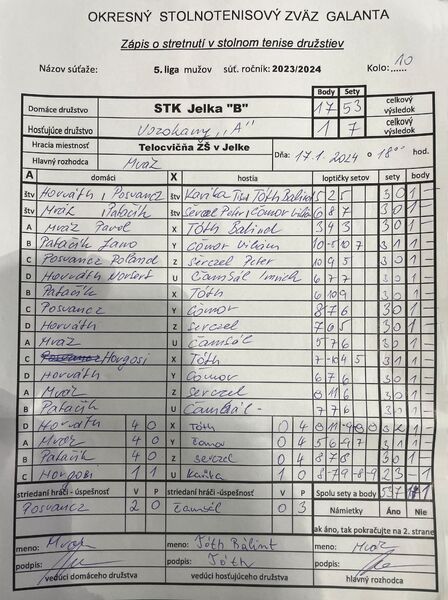 OKRESNÝ STOLNOTENISOVÝ ZVÄZ GALANTA
Zápis o stretnutí v stolnom tenise družstiev
Názov súťaže: 5. liga mužov súť. ročník: 2023/2024 Kolo: 10
Body Sety
Domáce družstvo STK Jelka "B" 17 53 celkový výsledok
Hosťujúce družstvo "A" 1 7 celkový výsledok
Hracia miestnosť Telocvičňa ZŠ v Jelke Dňa: 17.1.2024 o 18 00
Hlavný rozhodca Mráz
A domáci X hostia loptičky setov sety body
štv Horváth, Posvancz štv Kavika Tóth Bálind 5 2 5 3 0 1 -
štv Mráz Patačik štv Serczel Peter, Čömör 6 8 7 3 0 1 -
A Mráz Pavol X Tóth Bálind 3 4 3 3 0 1 -
B Patačik Jano Y Čömör 3 1 1 -
C Posvancz Roland Z Serczel Peter 10 9 5 3 0 1 -
D Horváth Norbert U Čamšál Imrich 6 7 7 3 0 1 -
B Patačik X Tóth 6 10 9 3 0 1 -
C Posvancz Y Čömör 8 7 6 3 0 1 -
D Horváth Z Serczel 7 6 5 3 0 1 -
A Mráz U Čamšál 5 7 6 3 0 1 -
C Horgosi X Tóth 7 -10 4 5 3 1 1 -
D Horváth Y Čömör 6 7 6 3 0 1 -
A Mráz Z Serczel 3 0 1 -
B Patačik U Čamšál - 7 7 6 3 0 1 -
D Horváth 4 0 X Tóth 0 4 3 1 -
A Mráz 4 0 Y 0 4 5 6 -9 7 3 1 1 -
B Patačik 4 0 Z Serczel 0 4 8 7 6 3 0 1 -
C Horgosi 1 1 U Kavika 1 0 8 -7 9 -8 -9 2 3 - 1
striedaní hráči - úspešnosť V P striedaní hráči - úspešnosť V P Spolu sety a body 53 7 17 1
Posvancz 2 0 Čamšál 0 3 Námietky Áno Nie
ak áno, tak pokračujte na 2. str.
meno: Mráz meno: Tóth Bálint meno: Mráz
podpis: podpis: Tóth podpis:
vedúci domáceho družstva vedúci hosťujúceho družstva hlavný rozhodca